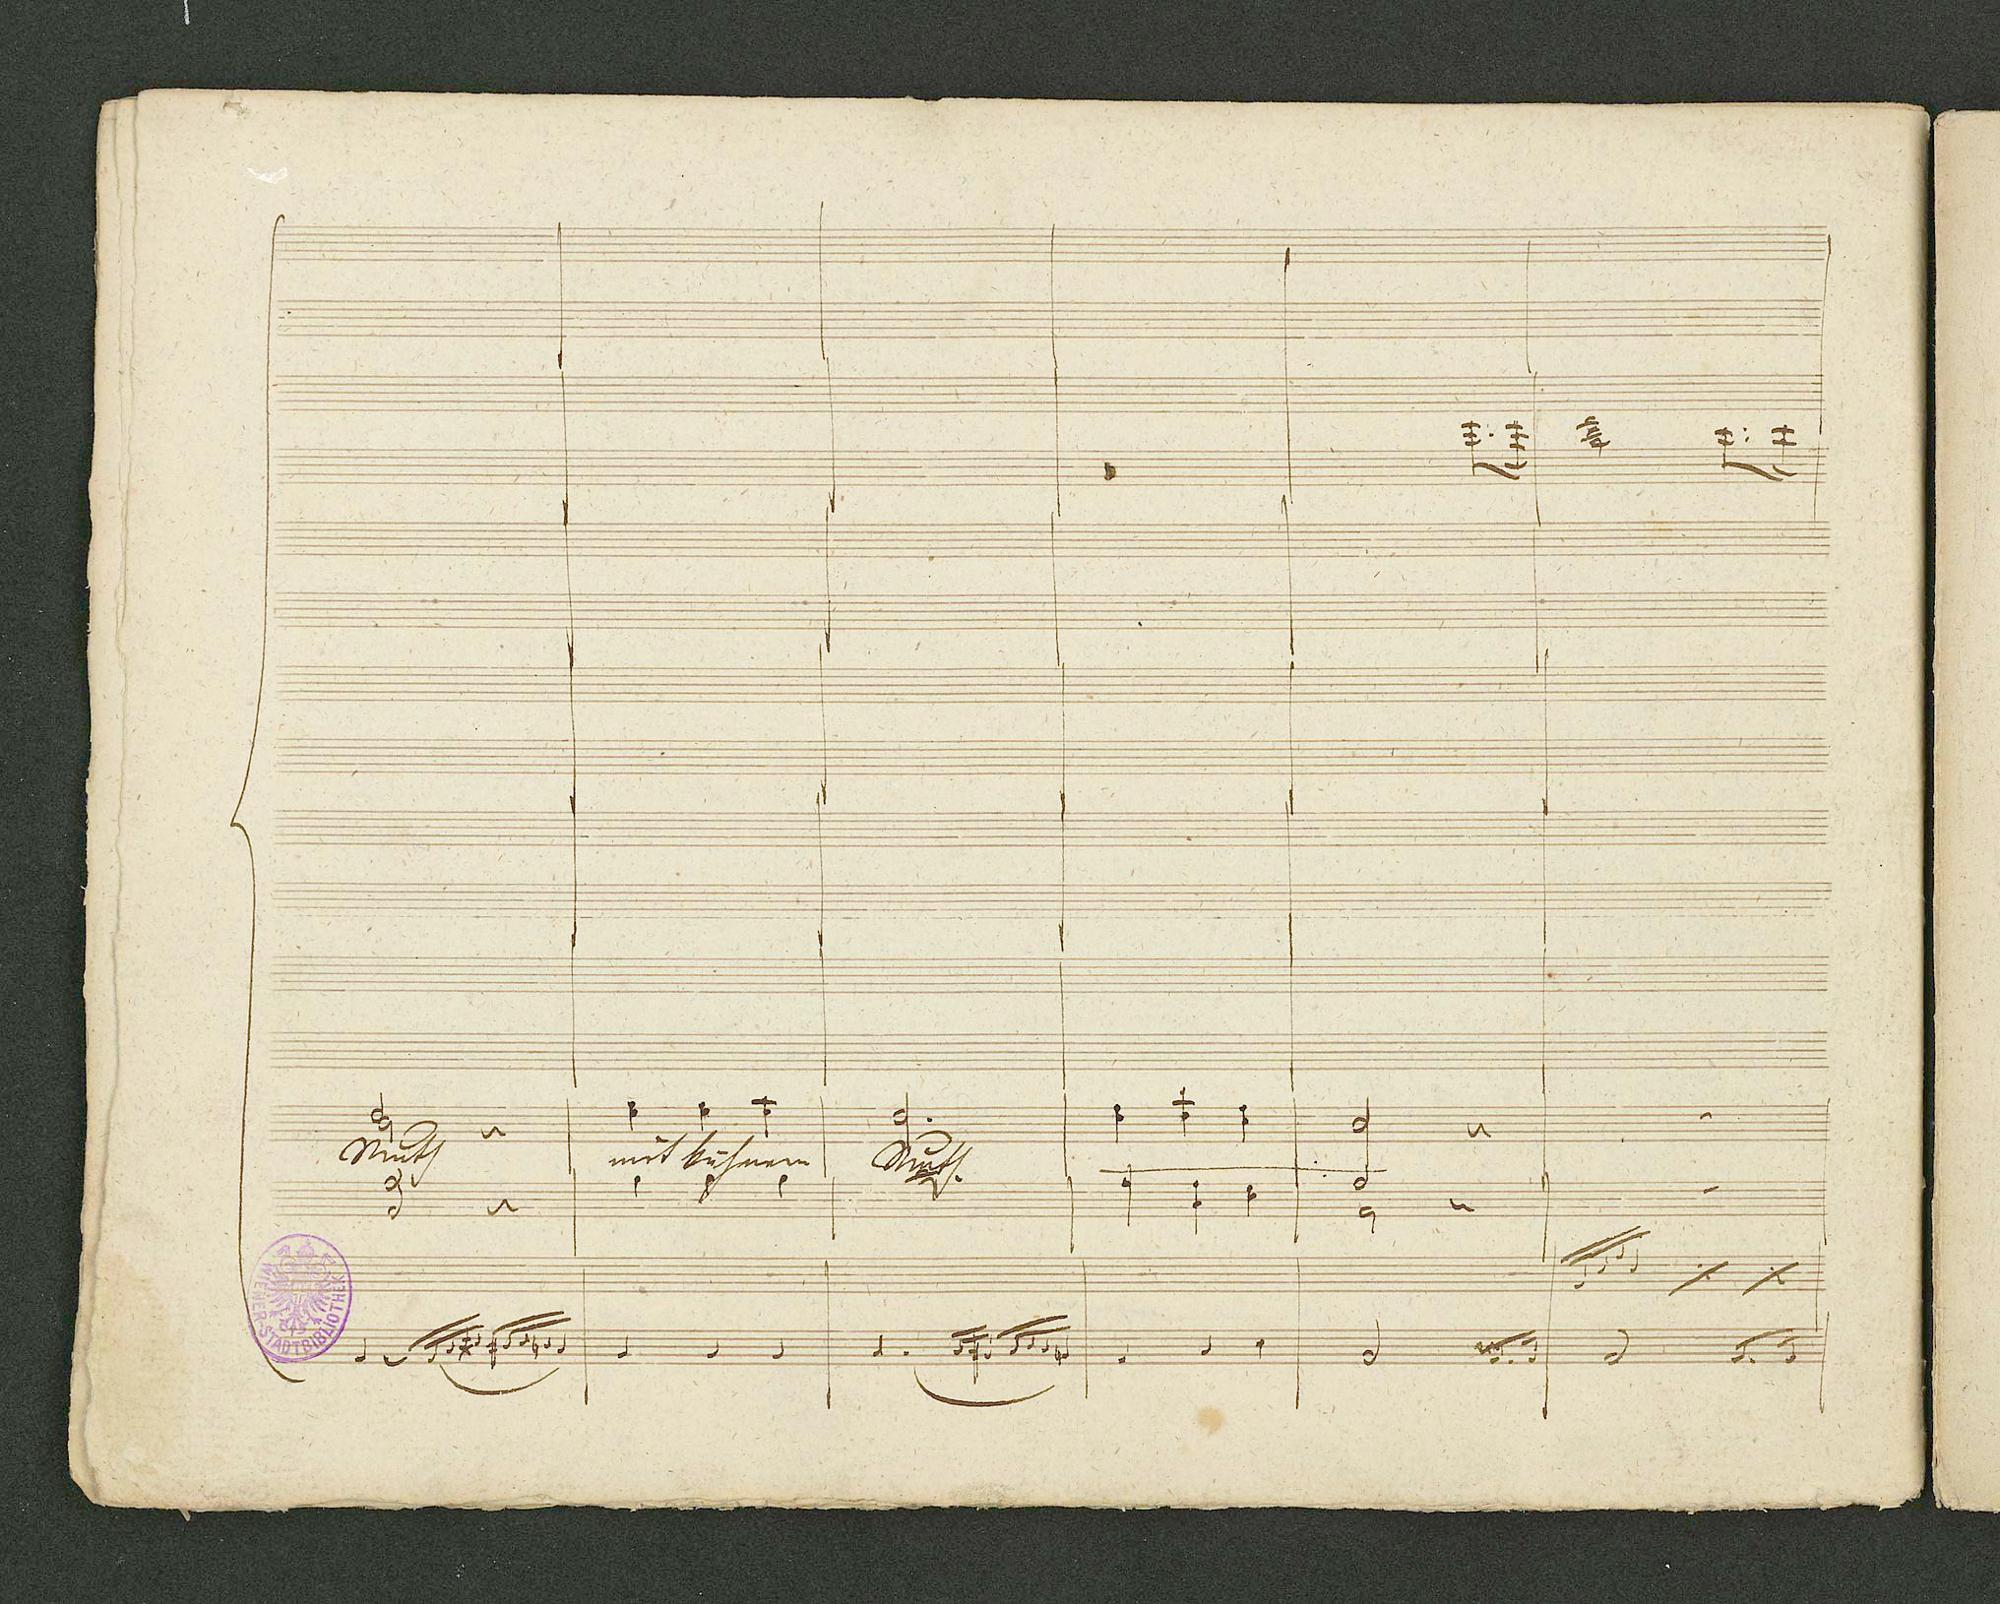 Muth mit kühnem Muth.
WIENER-STADTBIBLIOTHEK